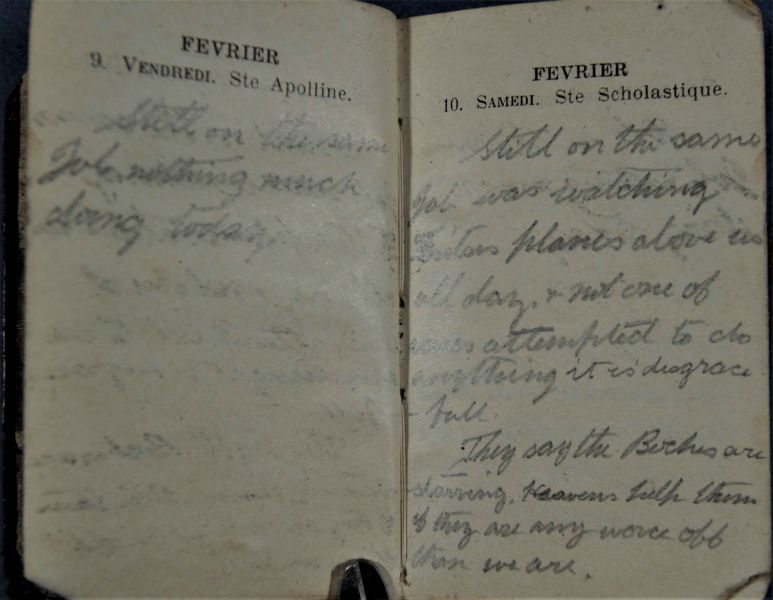 FEVRIER
9. VENDREDI. Ste Apolline.
Still on the same
Job nothing much
doing today.
FEVRIER
10. SAMEDI. Ste Scholastique.
Still on the same
Job was watching
planes above us
all day, & not one of
ours attempted to do
anything it is disgrace
-full.
They say the Boches are
starving. Heavens help them
if they are any worce off
than we are.